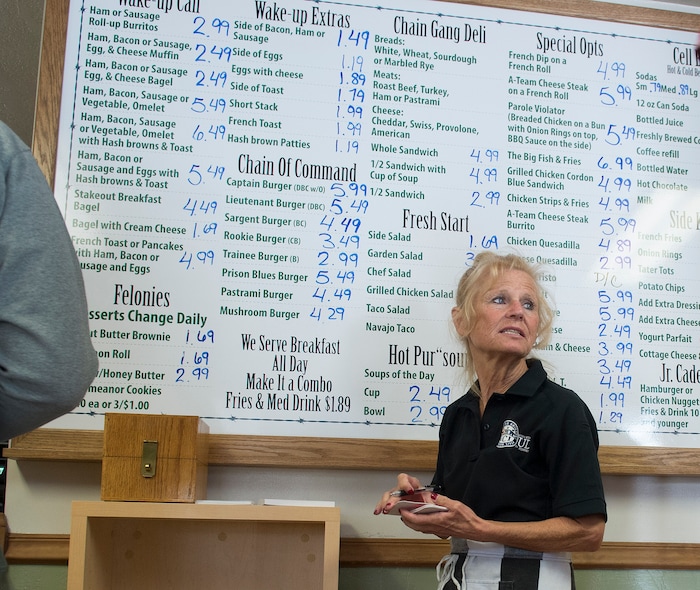 Wake-up Call
Ham or Sausage
Roll-up Burritos 2.99
Ham, Bacon or Sausage,
Egg, & Cheese Muffin 2.49
Ham, Bacon or Sausage
Egg, & Cheese Bagel 2.49
Ham, Bacon, Sausage or
Vegetable, Omelet 5.49
Ham, Bacon, Sausage
or Vegetable, Omelet
with Hash browns & Toast 6.49
Ham, Bacon or
Sausage and Eggs with
Hash browns & Toast 5.49
Stakeout Breakfast
Bagel 4.49
Bagel with Cream Cheese 1.69
French Toast or Pancakes
with Ham, Bacon or
Sausage and Eggs 4.99
Felonies
Desserts Change Daily
Butter Brownie 1.69
Roll 1.69
/Honey Butter 2.99
Cookies
ea or 3/$1.00
Wake-up Extras
Side of Bacon, Ham or
Sausage 1.49
Side of Eggs 1.19
Eggs with cheese 1.89
Side of Toast 1.79
Short Stack 1.99
French Toast 1.99
Hash brown Patties 1.19
Chain Of Command
Captain Burger (DBC w/O) 5.99
Lieutenant Burger (DBC) 5.49
Sargent Burger (BC) 4.49
Rookie Burger (CB) 3.49
Trainee Burger (B) 2.99
Prison Blues Burger 5.49
Pastrami Burger 4.49
Mushroom Burger 4.29
We Serve Breakfast
All Day
Make It a Combo
Fries & Med Drink $1.89
Chain Gang Deli
Breads:
White, Wheat, Sourdough
or Marbled Rye
Meats:
Roast Beef, Turkey,
Ham or Pastrami
Cheese:
Cheddar, Swiss, Provolone,
American
Whole Sandwich 4.99
1/2 Sandwich with
Cup of Soup 4.99
1/2 Sandwich 2.99
Fresh Start
Side Salad 1.69
Garden Salad
Chef Salad
Grilled Chicken Salad
Taco Salad
Navajo Taco
Hot Pur"sou
Soups of the Day
Cup 2.49
Bowl 2.99
Special Opts
French Dip on a
French Roll 4.99
A-Team Cheese Steak
on a French Roll 5.99
Parole Violator
(Breaded Chicken on a Bun
with Onion Rings on top,
BBQ Sauce on the side) 5.49
The Big Fish & Fries 6.99
Grilled Chicken Cordon
Blue Sandwich 4.99
Chicken Strips & Fries 4.99
A-Team Cheese Steak
Burrito 5.99
Chicken Quesadilla 4.89
Cheese Quesadilla 2.99
D/C
5.99
5.99
2.49
& Cheese 3.99
3.49
4.49
1.99
1.29
Cell
Hot & Cold
Sodas
Sm .79 Med .89 Lg
12 oz Can Soda
Bottled Juice
Freshly Brewed
Coffee refill
Bottled Water
Hot Chocolate
Milk
Side
French Fries
Onion Rings
Tater Tots
Potato Chips
Add Extra Dressing
Add Extra
Yogurt Parfait
Cottage Cheese
Jr. Cade
Hamburger or
Chicken Nugget
Fries & Drink 10
and younger